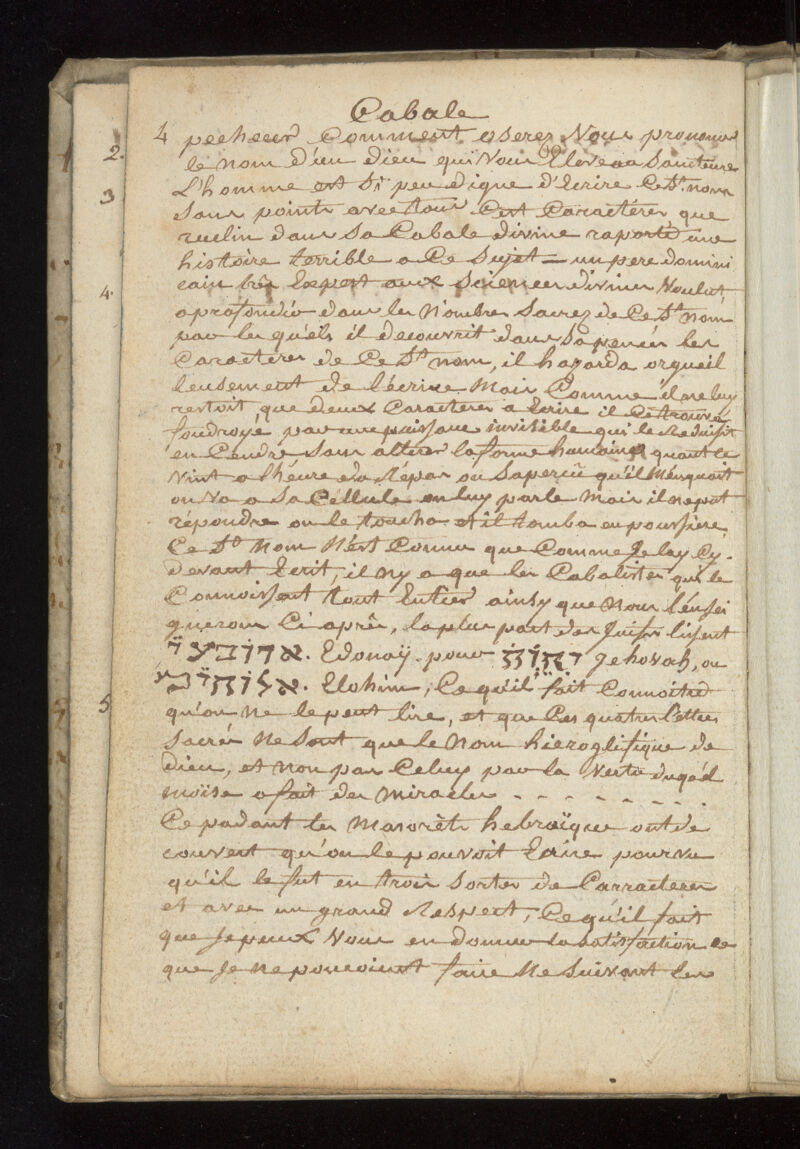 Cabale
4 pecheur Comment oserez Vous prononcer
2. le nom d'un dieu qui Vous Eleve a sa
L'homme est Si peu digne d'Ecrire Ce St. nom
3 Sans points avec tous Cest Caracteres que
dans Sa Cabale divine raporte une
histoire terrible a Ce Sujet = un pere domini
4. cain trés Expert aux Sciences divines Voulut
aprofondir dans les Nombres Sacrez de Ce St. nom
par les quels il decouvrit dans sa pensée les
Caracteres de Ce St. nom, il hazarda orgueil
leusement de l'écrire Mais Comme il ne luy
restoit que deux Caracteres a Ecrire il Ce trouva
foudroye par une puissance invisible qui le Reduisit
en Cendre Sans alterer la forme humaine quant Ce
Vint a l'heure du Répas on Saperçû qu'il Menquoit
on Va a Sa Céllule on luy parle Mais il ne put
répondre on le toucha et il tomba en poussiére,
Ce St. Nom N'est Connu que Comme Je lay Cy.
devant Ecrit, il Ny a que les Cabalistes qui le
Connoissent tout Entier ainsy que Nous l'ensei
gnerons Ci aprés, la plus part des Juifs lisent
Edonaÿ. pour יהוה Jehovah, ou
Elohim, Ce qu'il fait Connoitre
5 qu'on Ne le peut lire, et que Ces quatres lettres
Sacrées Ne Sont que le Nom hieroglifique de
dieu, et Non pas Celuy par la Vertu duqu'el
moïse a fait des Miracles - - - - - - - - -
Ce padant les Masorèts hebraïque ont de
couvert qu'on le pouvoit Ecrire pourvu
qu'il le fut en trois Sortes de Carracteres
et avec un grand Respect, Ce qu'il fait
que Je peux Vous en donner la Satisfaction ce
que Je Ne pouvoient faire Ne Suivant les